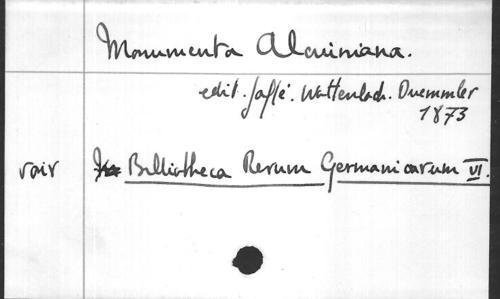 Monumenta Alcuiniana.
edit. Jaffé. Wattenbach. Duemmler
1873
voir Bibliotheca Rerum Germanicarum VI.